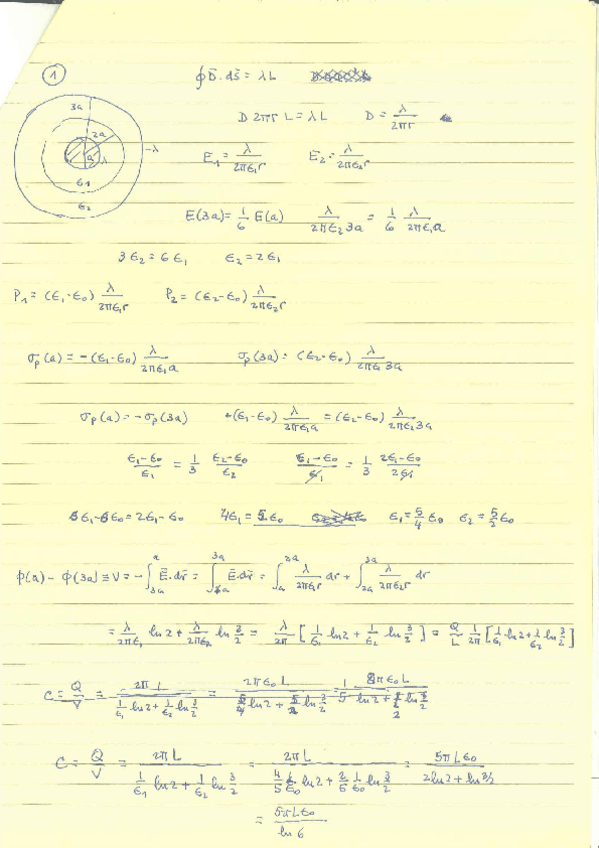 1
∮ D̄·ds̄ = λL
3a
2a
a
λ
-λ
ϵ1
ϵ2
D 2πr L = λL    D = λ/2πr
E1 = λ/2πϵ1r    E2 = λ/2πϵ2r
E(3a) = 1/6 E(a)    λ/2πϵ2 3a = 1/6 λ/2πϵ1a
3ϵ2 = 6ϵ1    ϵ2 = 2ϵ1
P1 = (ϵ1-ϵ0) λ/2πϵ1r    P2 = (ϵ2-ϵ0) λ/2πϵ2r
σp(a) = -(ϵ1-ϵ0) λ/2πϵ1a    σp(3a) = (ϵ2-ϵ0) λ/2πϵ2 3a
σp(a) = -σp(3a)    +(ϵ1-ϵ0) λ/2πϵ1a = (ϵ2-ϵ0) λ/2πϵ2 3a
ϵ1-ϵ0/ϵ1 = 1/3 ϵ2-ϵ0/ϵ2    ϵ1-ϵ0/ϵ1 = 1/3 2ϵ1-ϵ0/2ϵ1
6ϵ1-6ϵ0 = 2ϵ1-ϵ0    4ϵ1 = 5ϵ0    ϵ1 = 5/4 ϵ0    ϵ2 = 5/2 ϵ0
ϕ(a) - ϕ(3a) ≡ V = -∫3a a Ē·dr̄ = ∫a 3a Ē·dr̄ = ∫a 2a λ/2πϵ1r dr + ∫2a 3a λ/2πϵ2r dr
= λ/2πϵ1 ln2 + λ/2πϵ2 ln 3/2 = λ/2π [1/ϵ1 ln2 + 1/ϵ2 ln 3/2] = Q/L 1/2π [1/ϵ1 ln2 + 1/ϵ2 ln 3/2]
C = Q/V = 2πL/(1/ϵ1 ln2 + 1/ϵ2 ln 3/2) = 2πϵ0L
C = Q/V = 2πL/(1/ϵ1 ln2 + 1/ϵ2 ln 3/2) = 2πL/(4/5 1/ϵ0 ln2 + 2/5 1/ϵ0 ln 3/2) = 5πLϵ0/(2ln2 + ln 3/2)
= 5πLϵ0/ln6